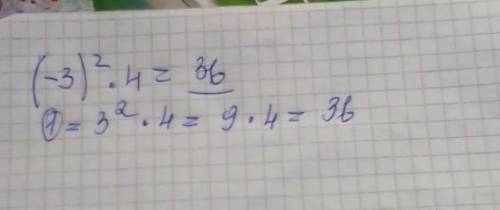 (-3)² · 4 = 36
① = 3² · 4 = 9 · 4 = 36